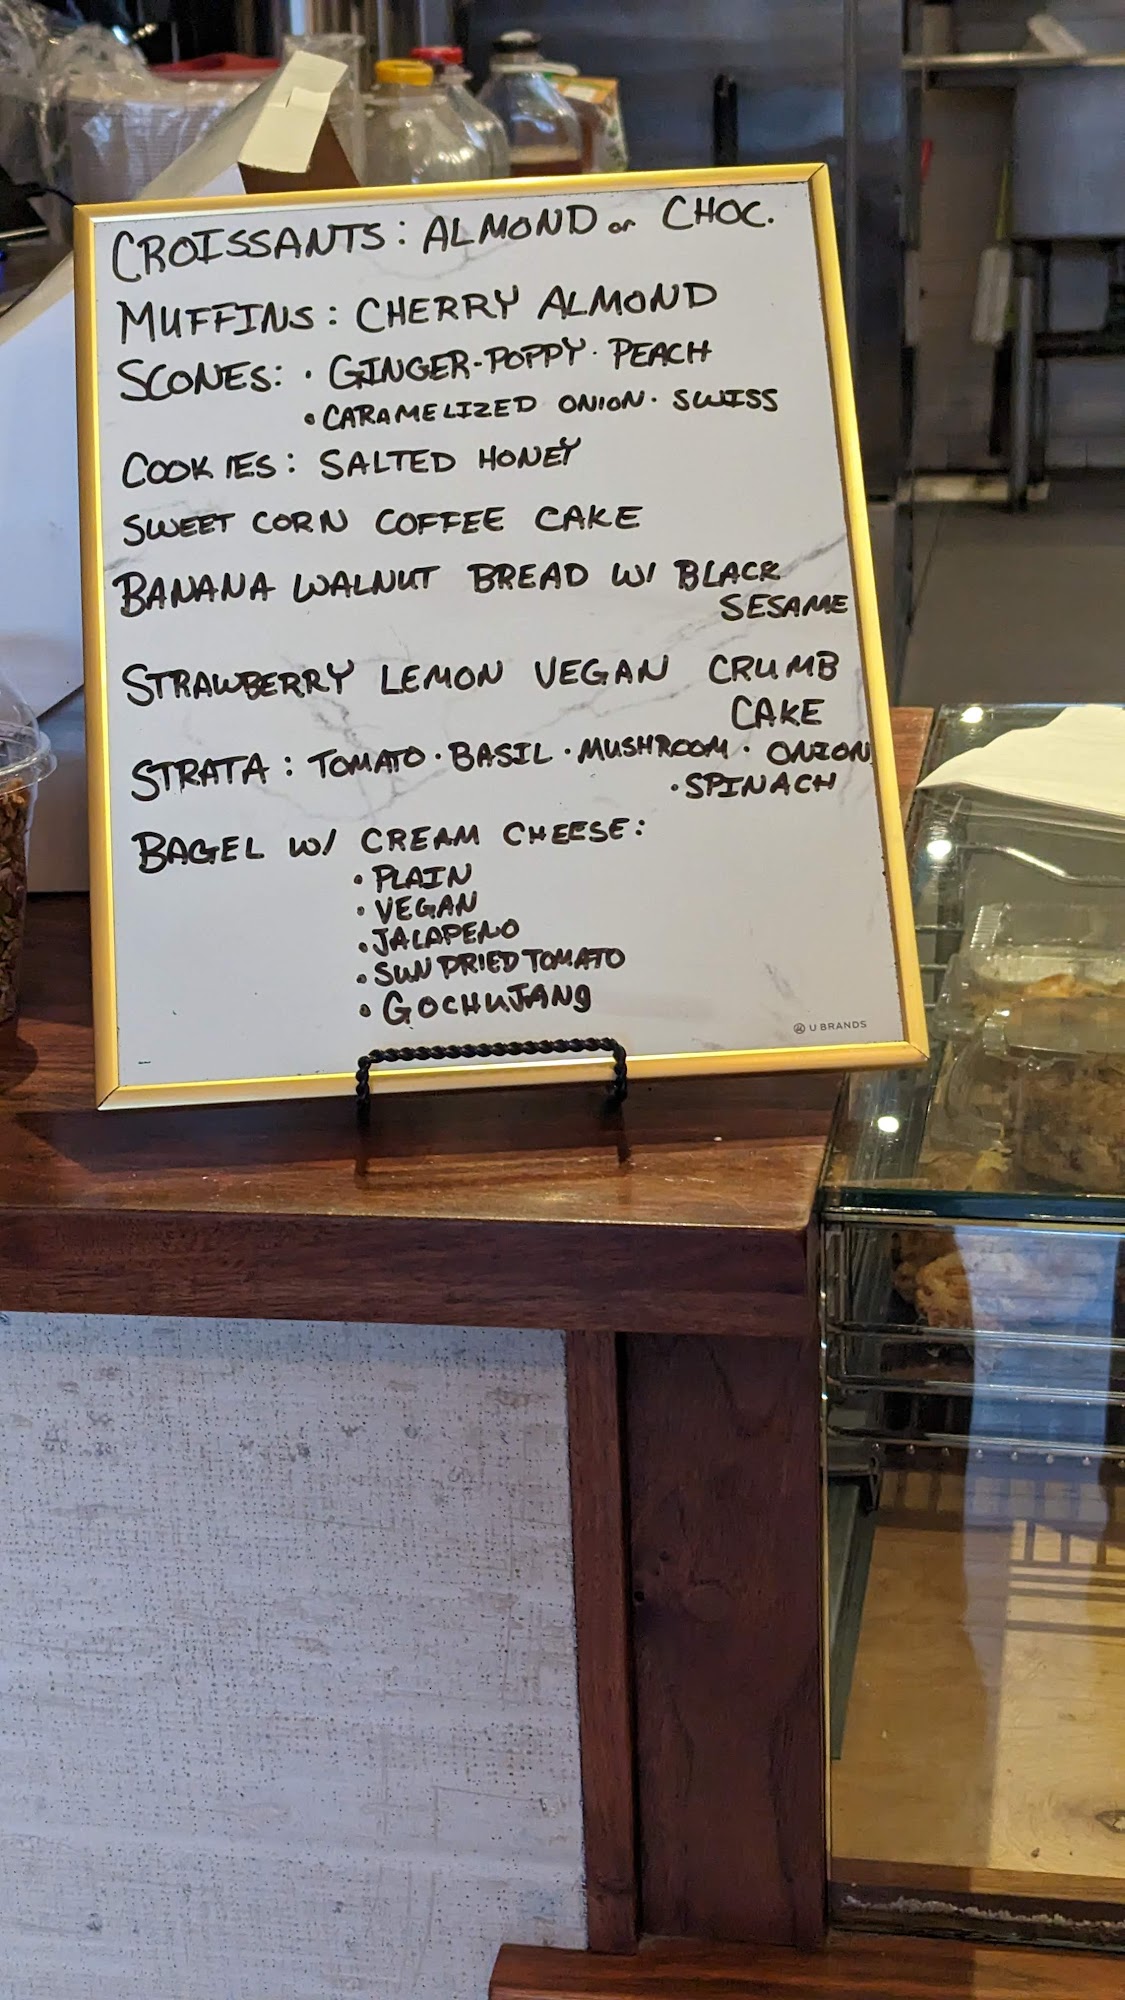 CROISSANTS: ALMOND or CHOC.
MUFFINS: CHERRY ALMOND
SCONES: • GINGER-POPPY • PEACH
• CARAMELIZED ONION • SWISS
COOKIES: SALTED HONEY
SWEET CORN COFFEE CAKE
BANANA WALNUT BREAD W/ BLACK
SESAME
STRAWBERRY LEMON VEGAN CRUMB
CAKE
STRATA: TOMATO • BASIL • MUSHROOM • ONION
• SPINACH
BAGEL W/ CREAM CHEESE:
• PLAIN
• VEGAN
• JALAPENO
• SUN DRIED TOMATO
• GOCHUJANG
U BRANDS